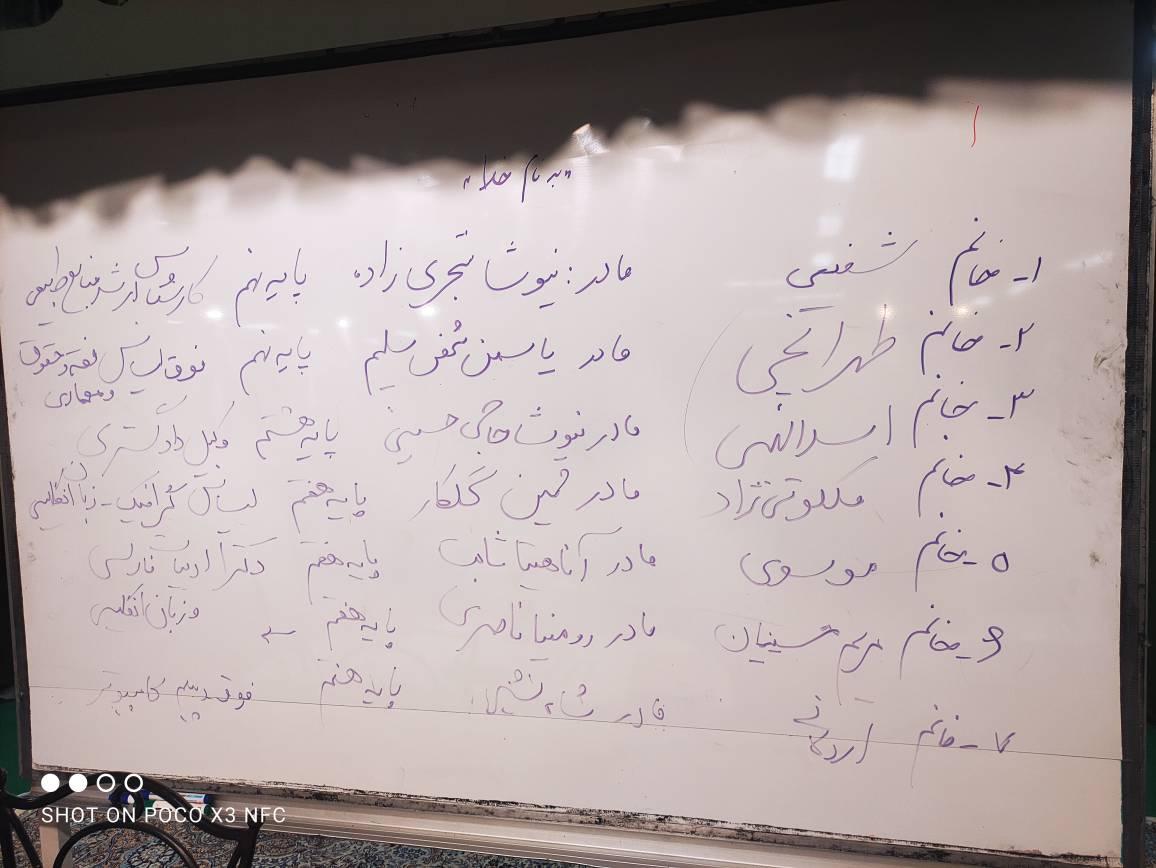 "به نام خدا"
۱- خانم شفیعی مادر: نیوشا تجری زاده پایه نهم کارشناس ارشد منابع طبیعی
۲- خانم طهرانچی مادر یاسمن شمس سلیم پایه نهم فوق لیسانس فقه و حقوق
و معماری
۳- خانم اسداللهی مادر نیوشا حاجی حسینی پایه هشتم وکیل دادگستری
۴- خانم ملکوتی نژاد مادر ثمین گلکار پایه هفتم لیسانس گرافیک - زبان انگلیسی
۵- خانم موسوی مادر آناهیتا ثابت پایه هفتم دکترا ادبیات فارسی
و زبان انگلیسی
۶- خانم مریم حسینیان مادر رومینا ناصری پایه هفتم
۷- خانم اردکانی مادر پایه هفتم فوق دیپلم کامپیوتر
SHOT ON POCO X3 NFC